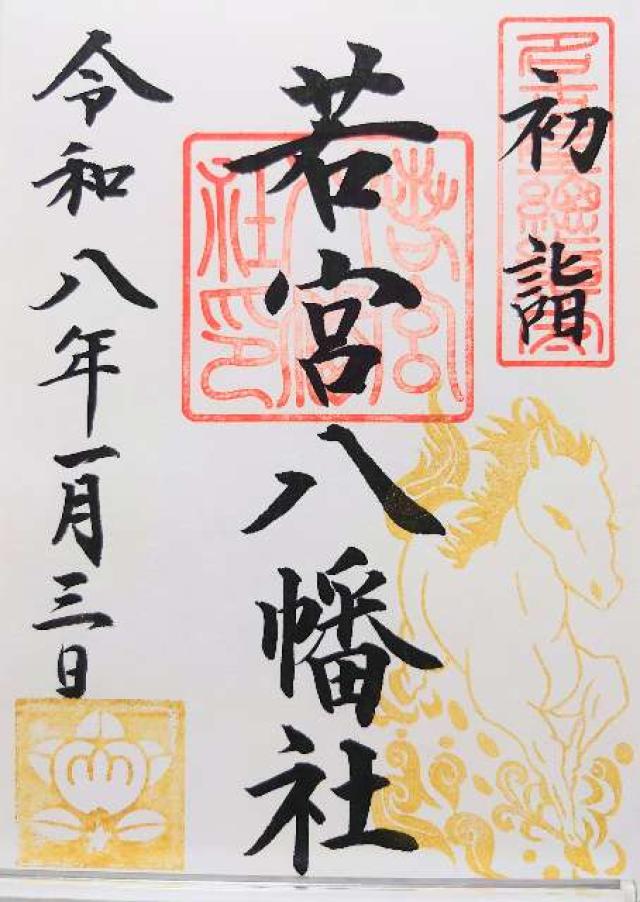 初詣
若宮八幡社
令和八年一月三日
若宮八幡社印